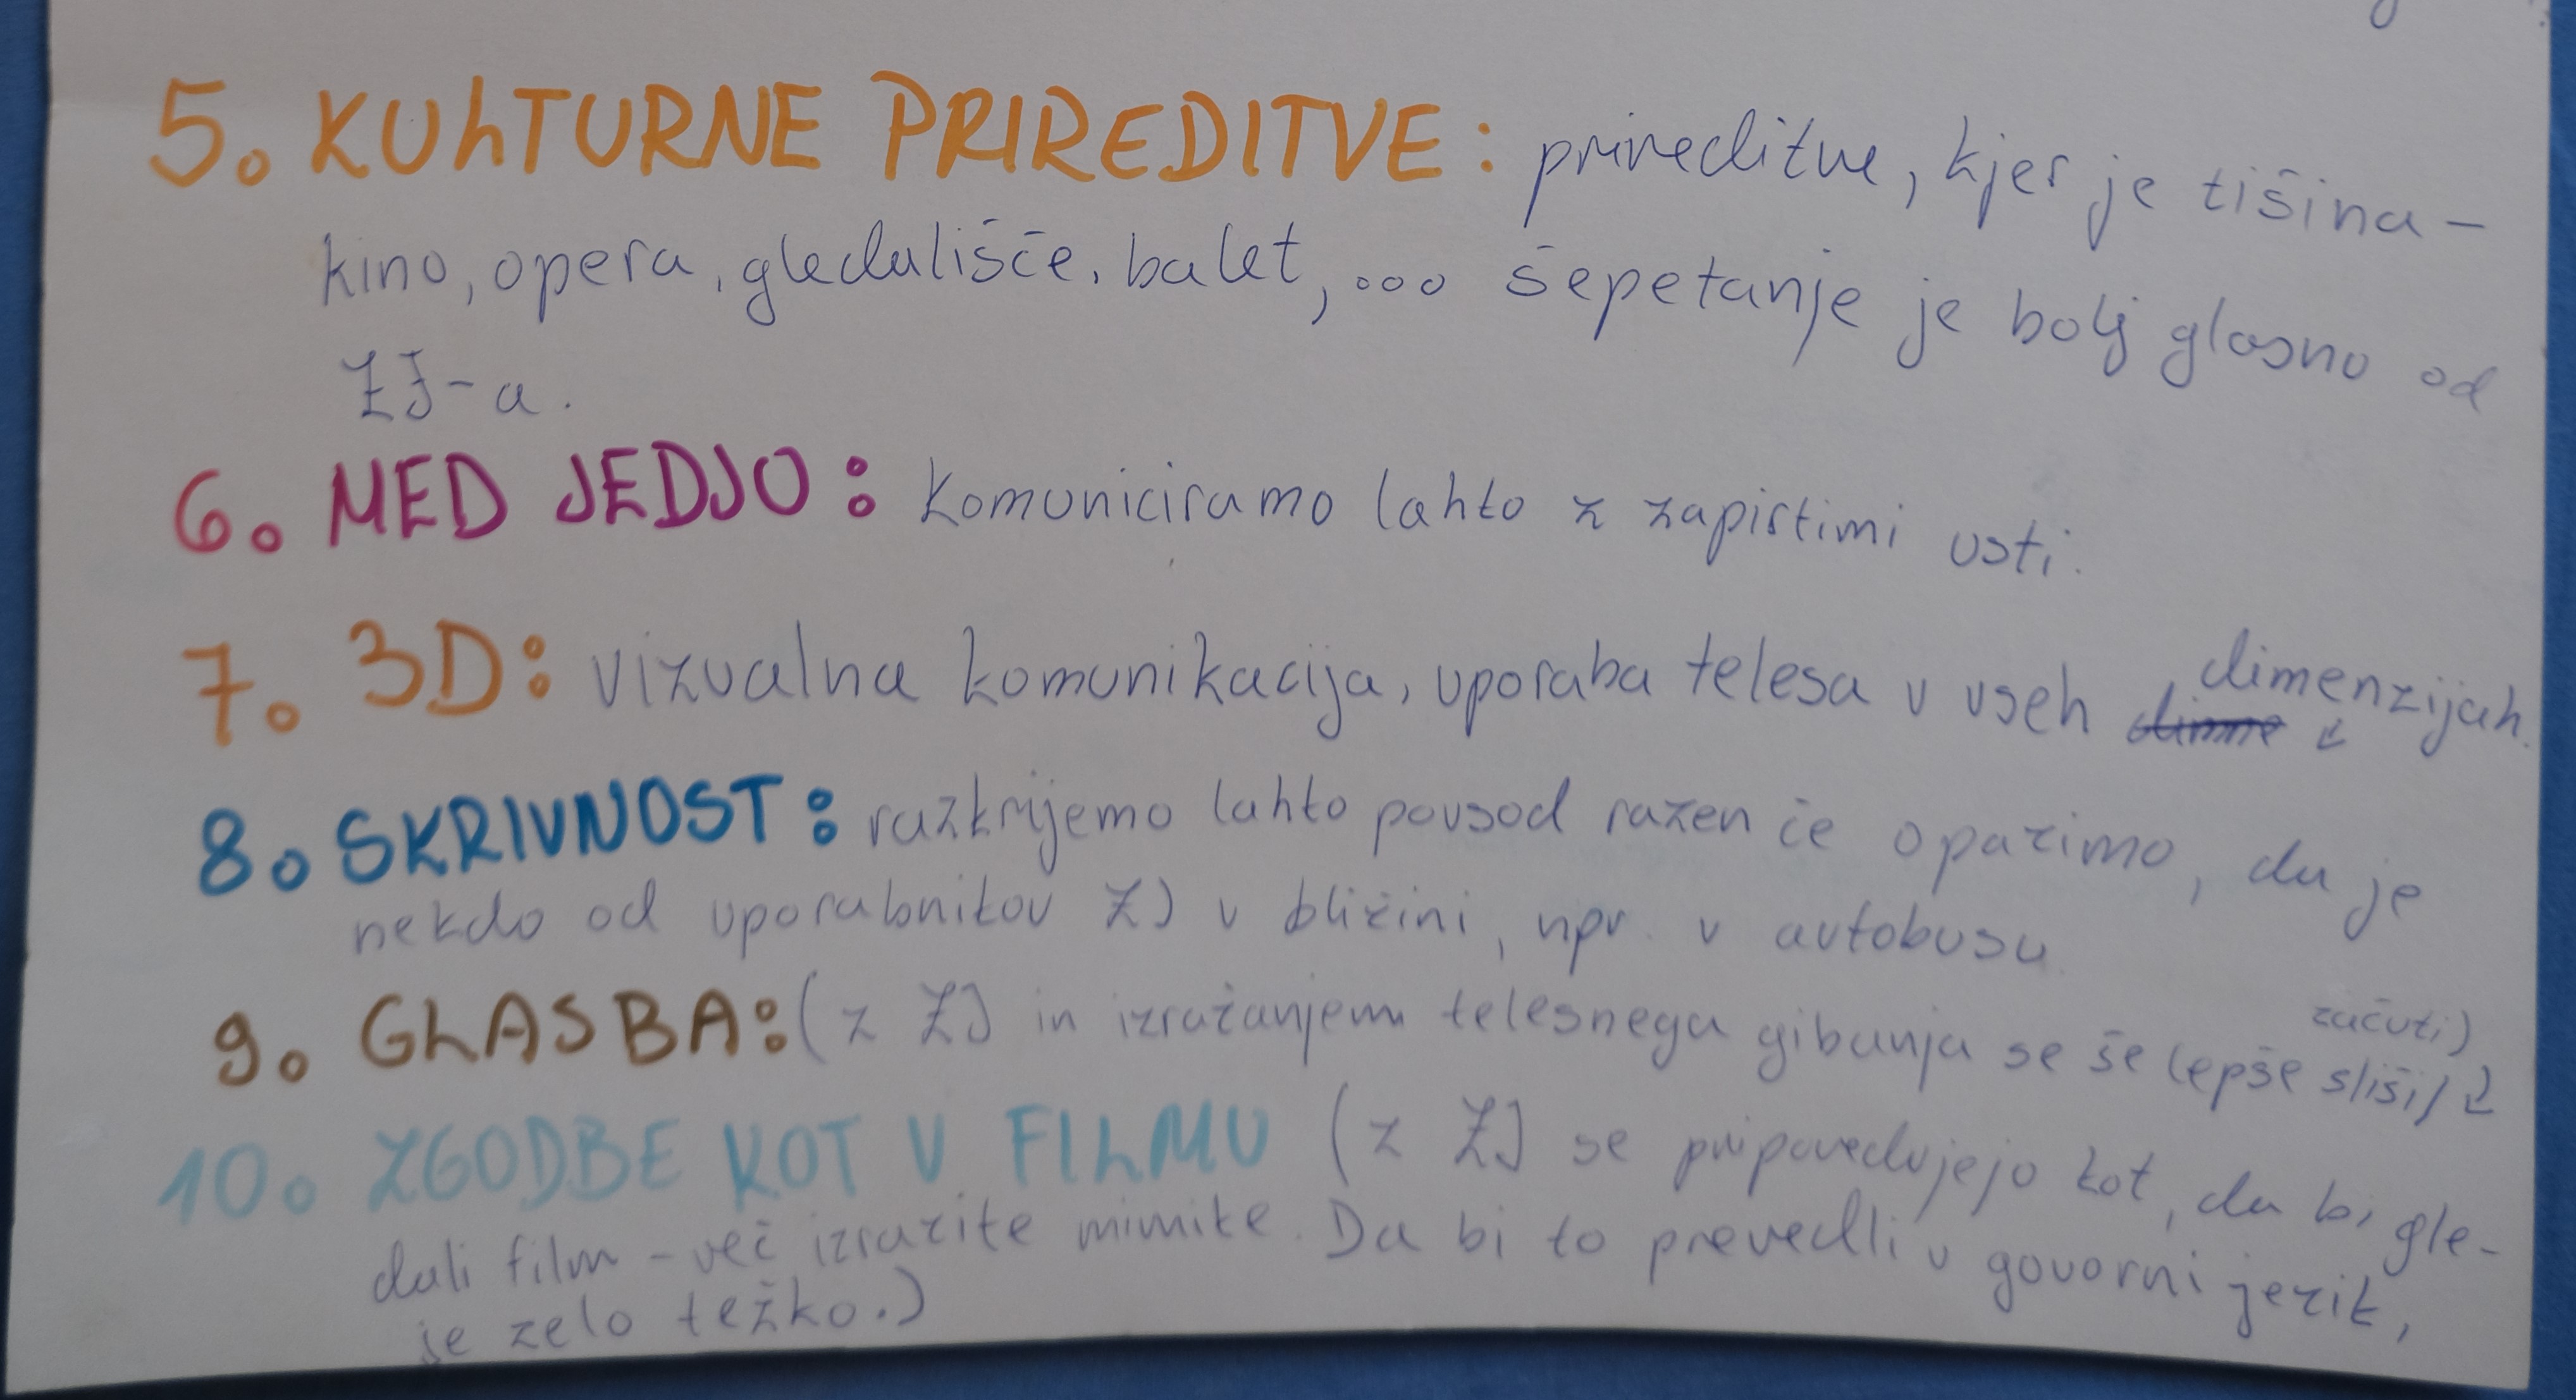 5. KULTURNE PRIREDITVE: prireditve, kjer je tišina -
kino, opera, gledališče, balet, ... šepetanje je bolj glasno od
ZJ-a.
6. MED JEDJO: komuniciramo lahko z zaprtimi usti.
7. 3D: vizualna komunikacija, uporaba telesa v vseh dimenzijah.
8. SKRIVNOST: razkrijemo lahko povsod razen če opazimo, da je
nekdo od uporabnikov ZJ v bližini, npr. v avtobusu
9. GLASBA: (z ZJ in izražanjem telesnega gibanja se še lepše sliši/
začuti)
10. ZGODBE KOT V FILMU (z ZJ se pripovedujejo kot, da bi gle-
dali film - več izrazite mimike. Da bi to prevedli v govorni jezik,
je zelo težko.)